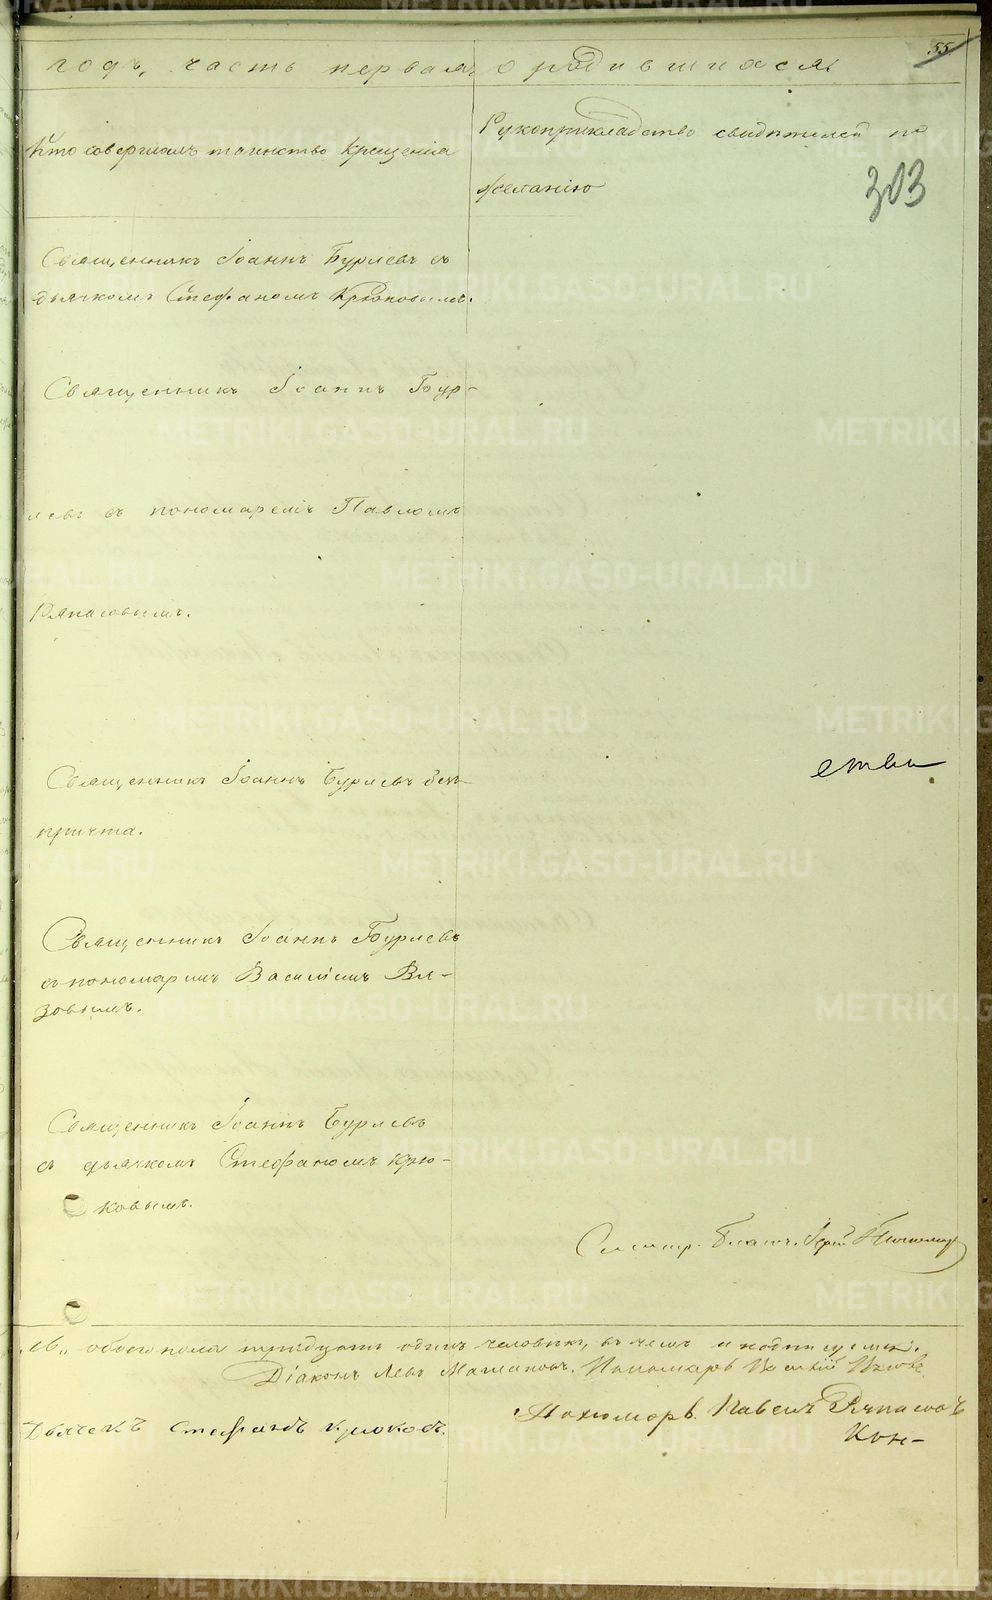 55
годъ, часть первая о родившихся.
Кто совершалъ таинство крещенія
Рукоприкладство свидѣтелей по
желанію
303
Священникъ Іоаннъ Бурлевъ съ
дьячкомъ Стефаномъ Крюковымъ.
Священникъ Іоаннъ Бур-
левъ съ пономаремъ Павломъ
Ряпасовымъ.
Священникъ Іоаннъ Бурлевъ безъ
причта.
ства
Священникъ Іоаннъ Бурлевъ
съ пономаремъ Василіемъ Вя-
зовымъ.
Священникъ Іоаннъ Бурлевъ
съ дьячкомъ Стефаномъ Крю-
ковымъ.
обоего пола тридцать одинъ человѣкъ, въ чемъ и подписуемся:
Діаконъ Левъ Пономарь Василій
Дьячекъ Стефанъ Крюковъ.
Пономарь Павелъ Ряпасовъ
Кон-
METRIKI.GASO-URAL.RU